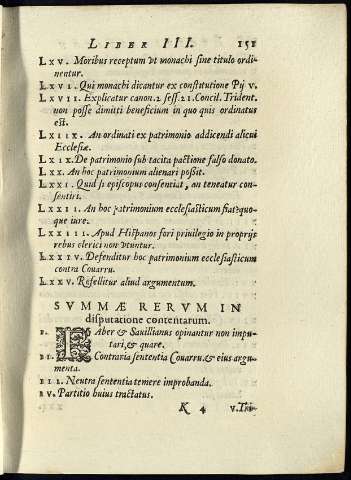 LIBER III. 151
LXV. Moribus receptum vt monachi sine titulo ordi-
nentur.
LXVI. Qui monachi dicantur ex constitutione Pij v.
LXVII. Explicatur canon. 2 sess. 21. Concil. Trident.
non posse dimitti beneficium in quo quis ordinatus
est.
LXIIX. An ordinati ex patrimonio addicendi alicui
Ecclesiæ.
LXIX. De patrimonio sub tacita pactione falso donato.
LXX. An hoc patrimonium alienari possit.
LXXI. Quid si episcopus consentiat, an teneatur con-
sentiri.
LXXII. An hoc patrimonium ecclesiasticum fiat quo-
que iure.
LXXIII. Apud Hispanos fori priuilegio in proprijs
rebus clerici non vtuntur.
LXXIV. Defenditur hoc patrimonium ecclesiasticum
contra Couarru.
LXXV. Refellitur aliud argumentum.
SVMMÆ RERVM IN
disputatione contentarum.
FABER & Sauillianus opinantur non impu-
tari, & quare.
II. Contraria sententia Couarru. & eius argu-
menta.
III. Neutra sententia temere improbanda.
V. Partitio huius tractatus.
K 4 V. Tri-